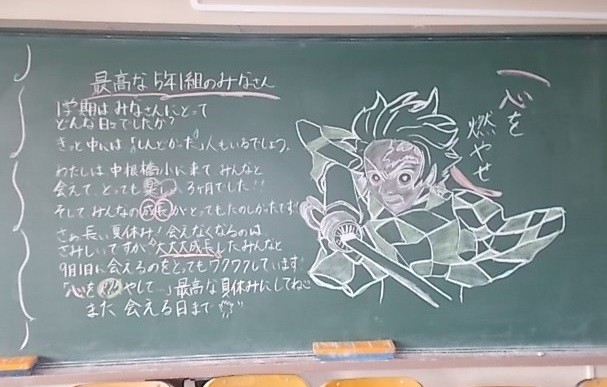 最高な5年1組のみなさん
1学期はみなさんにとって
どんな日々でしたか？
きっと中には「しんどかった」人もいるでしょう。
わたしは中根橋小に来てみんなと
会えて、とっても楽しい3ヶ月でした!!
そしてみんなの成長がとってもたのしかったです
さぁ長い夏休み！会えなくなるのは、
さみしいですが、大大大成長したみんなと
9月1日に会えるのをとってもワクワクしています
「心を燃やして…」最高な夏休みにしてね
また会える日まで
心を
燃やせ